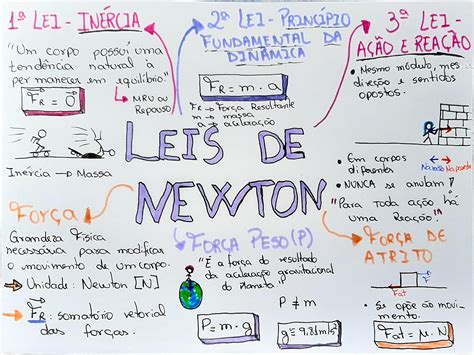 1ª LEI - INÉRCIA
"Um corpo possui uma
tendência natural à
permanecer em equilíbrio"
F⃗R = 0⃗
MRU ou
Repouso
Inércia → Massa
2ª LEI - PRINCÍPIO
FUNDAMENTAL DA
DINÂMICA
F⃗R = m · a
FR → Força Resultante
m → massa
a → aceleração
3ª LEI -
AÇÃO E REAÇÃO
• Mesmo módulo, mesma
direção e sentidos
opostos.
• Em corpos
diferentes
Na parede
• NUNCA se anulam!
"Para toda ação há
uma Reação!"
LEIS DE
NEWTON
FORÇA
Grandeza Física
necessária paisa modificar
o movimento de um corpo.
→ Unidade: Newton [N]
→ F⃗R: somatório vetorial
das forças.
FORÇA PESO (P)
"É a força do resultado
da aceleração gravitacional
do Planeta."
P = m · g
P ≠ m
g ≅ 9,81m/s²
FORÇA DE
ATRITO
Fat
F
• Se opõe ao movi-
mento.
Fat = μ · N